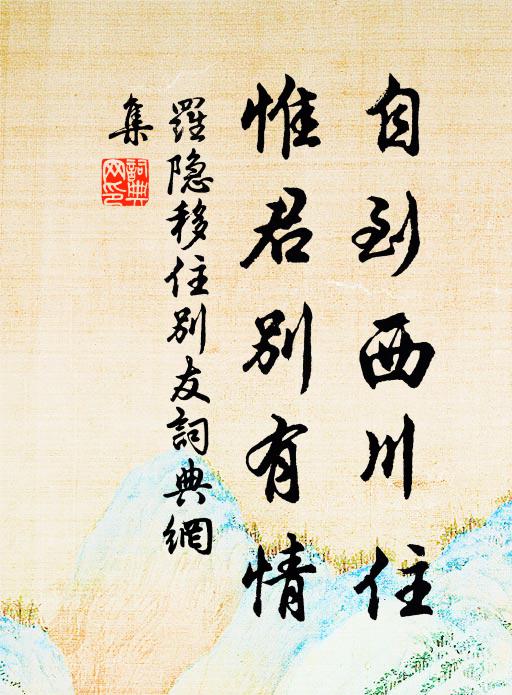 自到西川住
惟君别有情
羅隐移住别友詞典網
集
詞典
网印